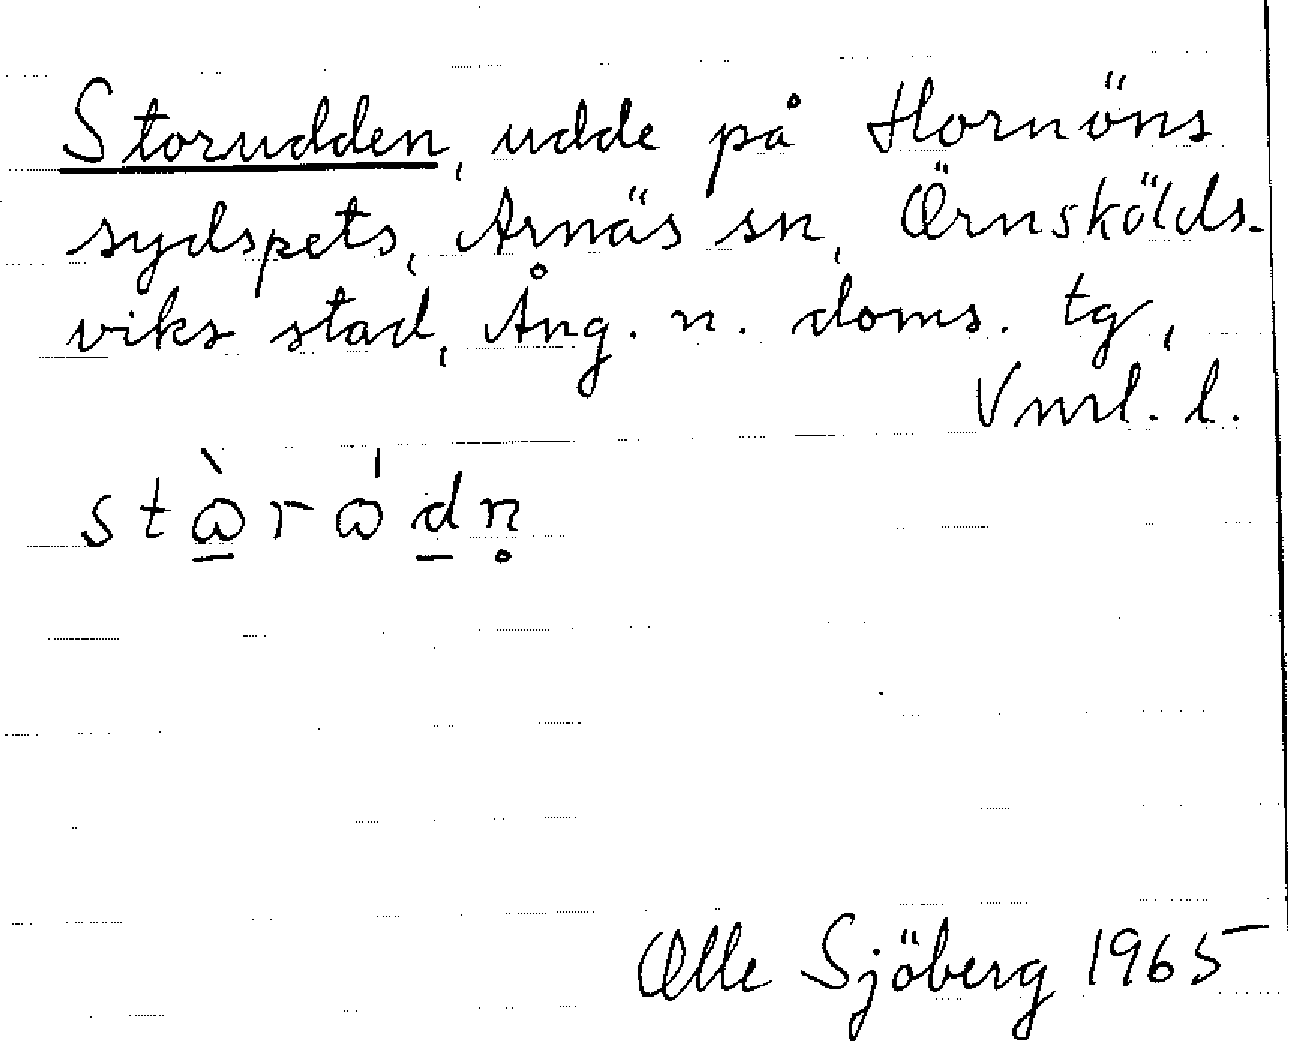 Storudden, udde på Hornöns
sydspets, Arnäs sn, Örnskölds-
viks stad, Ång. n. doms. tg,
Vnrl. l.
stɷ̲̀rɷ́d̲n̥
Olle Sjöberg 1965